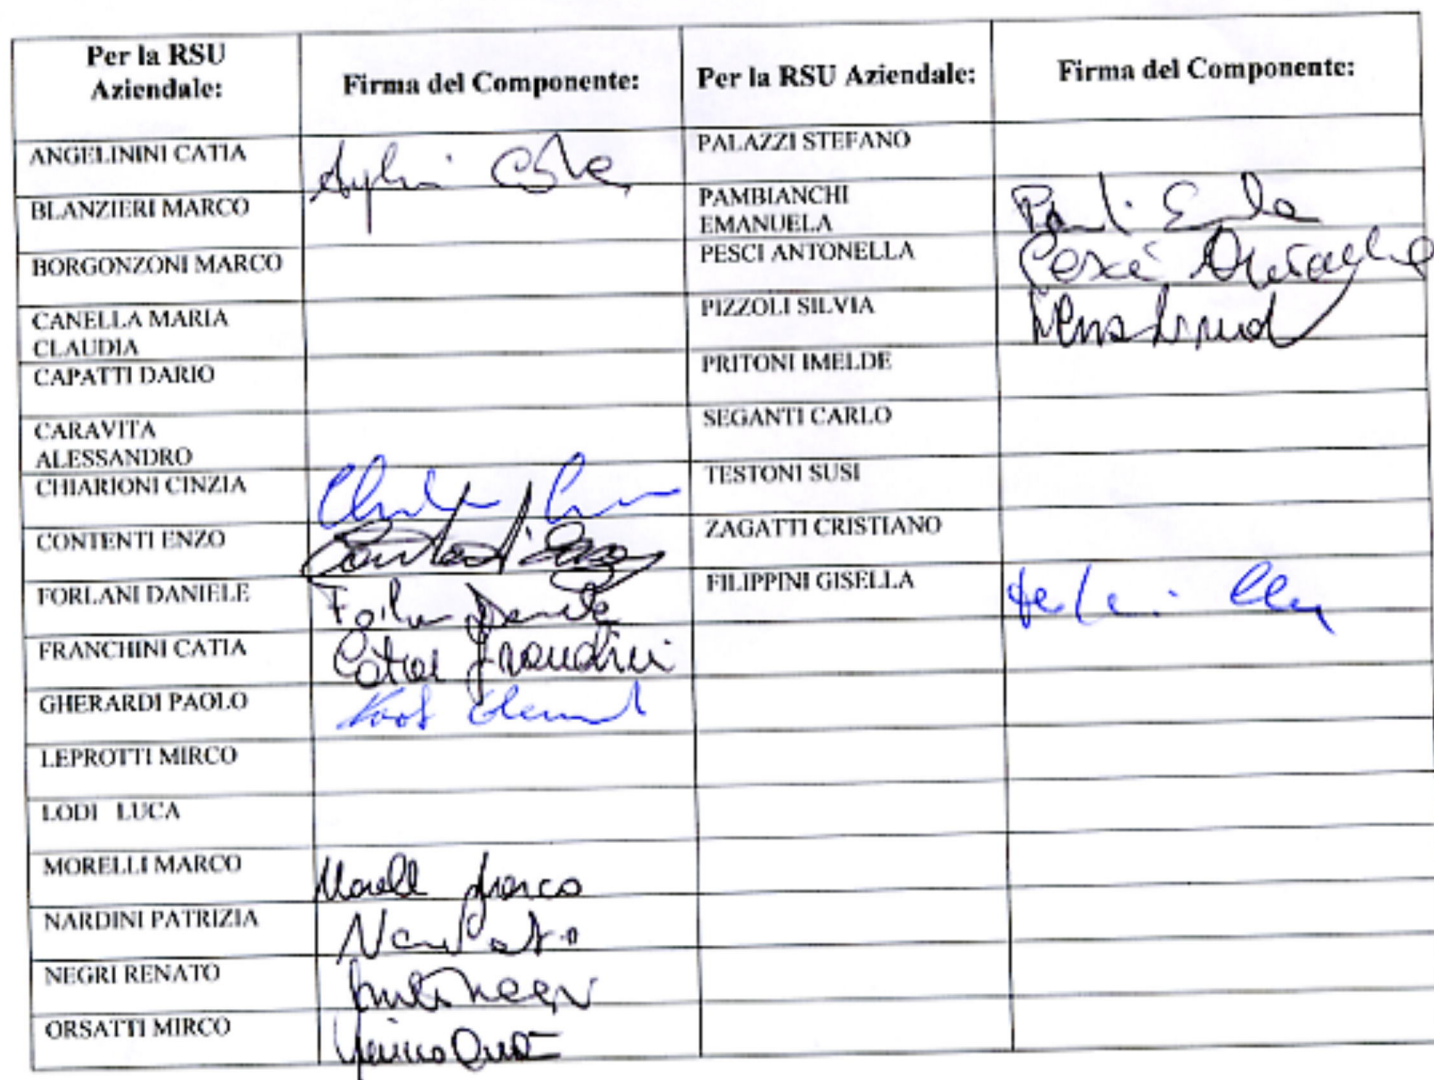 Per la RSU Aziendale:
Firma del Componente:
Per la RSU Aziendale:
Firma del Componente:
ANGELININI CATIA
PALAZZI STEFANO
BLANZIERI MARCO
PAMBIANCHI
EMANUELA
BORGONZONI MARCO
PESCI ANTONELLA
Pesci Antonella
CANELLA MARIA
CLAUDIA
PIZZOLI SILVIA
CAPATTI DARIO
PRITONI IMELDE
CARAVITA
ALESSANDRO
SEGANTI CARLO
CHIARIONI CINZIA
TESTONI SUSI
CONTENTI ENZO
Contenti Enzo
ZAGATTI CRISTIANO
FORLANI DANIELE
Forlani Daniele
FILIPPINI GISELLA
FRANCHINI CATIA
Catia Franchini
GHERARDI PAOLO
LEPROTTI MIRCO
LODI LUCA
MORELLI MARCO
Morelli Marco
NARDINI PATRIZIA
NEGRI RENATO
Renato Negri
ORSATTI MIRCO